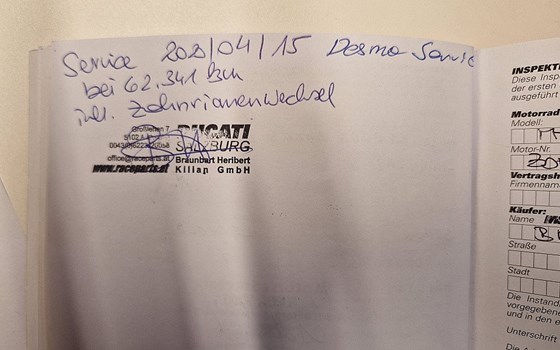 Service 2020/04/15 Desmo Service
bei 62.341 km
inkl. Zahnriemenwechsel
Großalben 7
DUCATI
SALZBURG
office@raceparts.at
Braunbart Heribert
www.raceparts.at
Kilian GmbH
INSPEKTI
Diese Insp
der ersten
ausgeführt
Motorrad
Modell:
Motor-Nr.
Vertragsh
Firmenname
Käufer:
Name
Straße
Stadt
Die Instand
vorgegebene
und in den e
Unterschrift